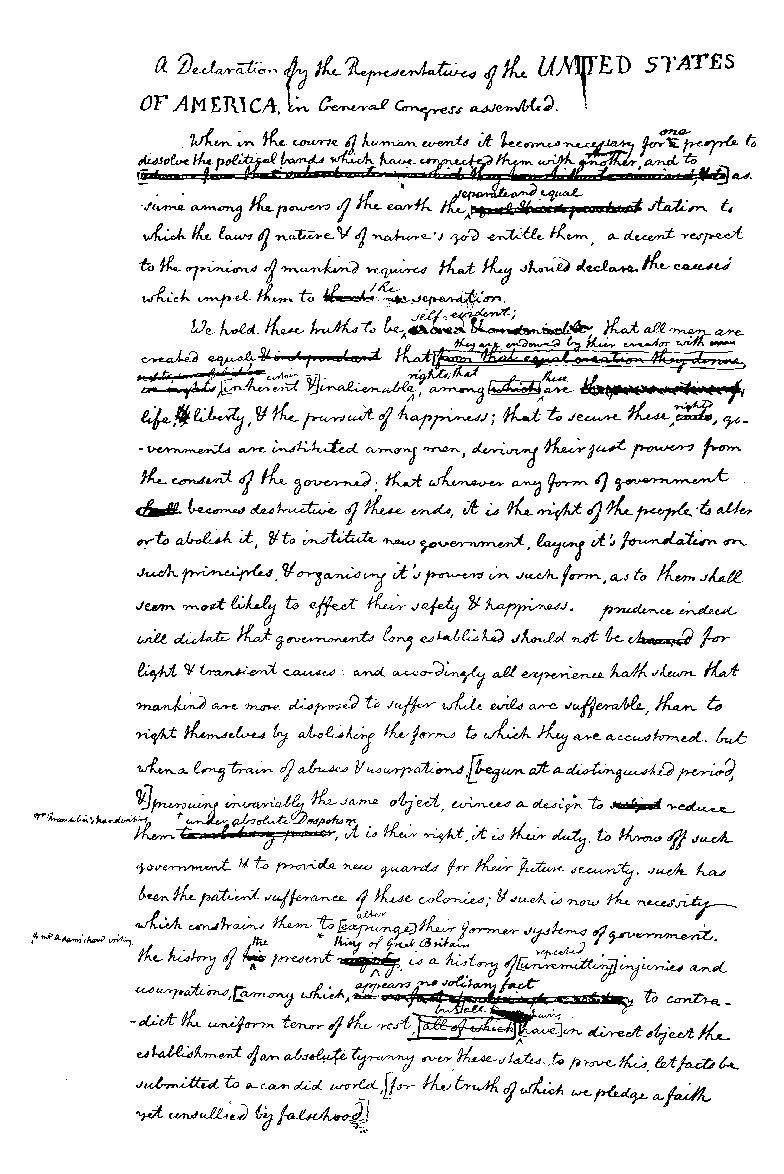 A Declaration by the Representatives of the UNITED STATES
OF AMERICA, in General Congress assembled.
When in the course of human events it becomes necessary for one people to
dissolve the political bands which have connected them with another, and to
as-
-sume among the powers of the earth the separate and equal station to
which the laws of nature & of nature's god entitle them, a decent respect
to the opinions of mankind requires that they should declare the causes
which impel them to the separation.
We hold these truths to be self-evident; that all men are
created equal & independant that they are endowed by their creator with
from that equal creation they derive
in rights certain [inherent &] inalienable rights, that among which these are
life, & liberty, & the pursuit of happiness; that to secure these rights, go-
-vernments are instituted among men, deriving their just powers from
the consent of the governed; that whenever any form of government
shall becomes destructive of these ends, it is the right of the people to alter
or to abolish it, & to institute new government, laying it's foundation on
such principles, & organising it's powers in such form, as to them shall
seem most likely to effect their safety & happiness. prudence indeed
will dictate that governments long established should not be changed for
light & transient causes: and accordingly all experience hath shewn that
mankind are more disposed to suffer while evils are sufferable, than to
right themselves by abolishing the forms to which they are accustomed. but
when a long train of abuses & usurpations [begun at a distinguished period,
&] pursuing invariably the same object, evinces a design to reduce
under absolute Despotism
them to arbitrary power, it is their right, it is their duty, to throw off such
government & to provide new guards for their future security. such has
been the patient sufferance of these colonies; & such is now the necessity
which constrains them to alter [expunge] their former systems of government.
the history of the present king of Great Britain is a history of repeated [unremitting] injuries and
usurpations, [among which, appears no solitary fact to contra-
-dict the uniform tenor of the rest, but all [all of which] have] in direct object the
establishment of an absolute tyranny over these states. to prove this, let facts be
submitted to a candid world, [for the truth of which we pledge a faith
yet unsullied by falsehood]